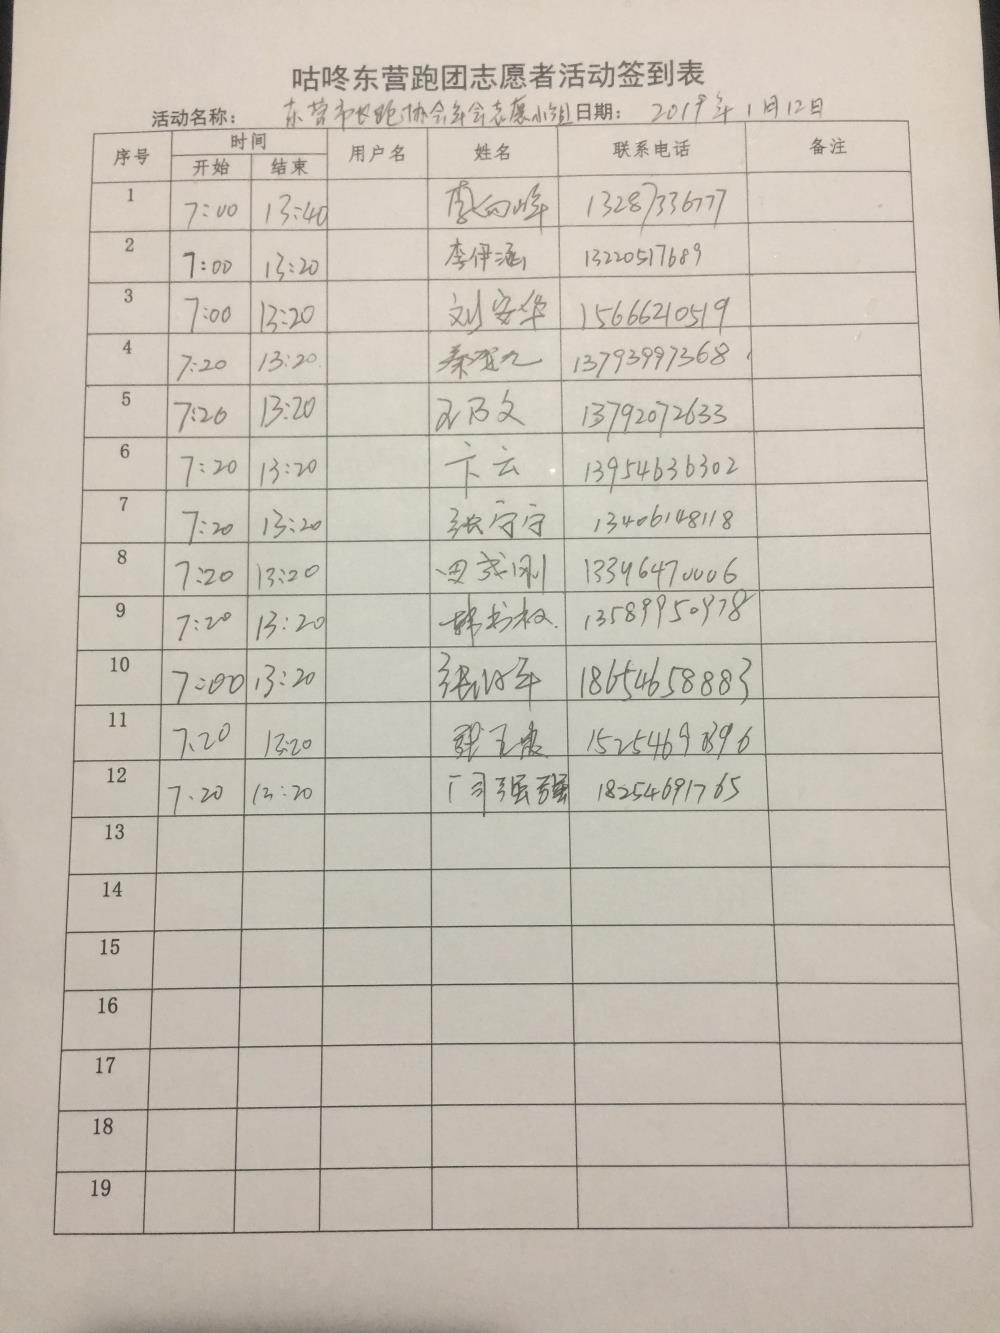 咕咚东营跑团志愿者活动签到表
活动名称： 东营市长跑协会年会志愿小组 日期： 2019年1月12日
序号 时间 用户名 姓名 联系电话 备注
开始 结束
1 7:00 13:40 李向峰 13287336777
2 7:00 13:20 李伊涵 13220517689
3 7:00 13:20 刘安华 15666210519
4 7:20 13:20 秦 13793997368
5 7:20 13:20 王乃文 13792072633
6 7:20 13:20 卞云 13954636302
7 7:20 13:20 张宁宁 13406148118
8 7:20 13:20 田成刚 13346470006
9 7:20 13:20 韩 13589950978
10 7:00 13:20 张 18654658883
11 7.20 13:20 张玉 152546
12 7.20 13:20 司强强 18254691765
13
14
15
16
17
18
19